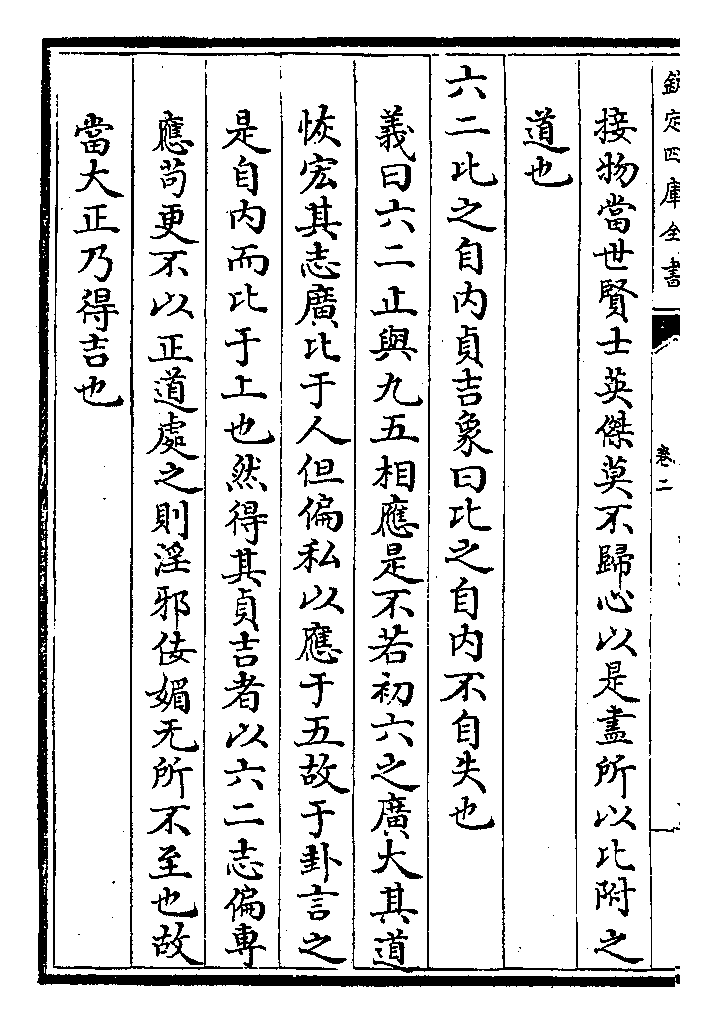 欽定四庫全書
卷二
接物當世賢士英傑莫不歸心以是盡所以比附之
道也
六二比之自內貞吉象曰比之自內不自失也
義曰六二止與九五相應是不若初六之廣大其道
恢宏其志廣比于人但偏私以應于五故于卦言之
是自內而比于上也然得其貞吉者以六二志偏專
應苟更不以正道處之則淫邪佞媚无所不至也故
當大正乃得吉也